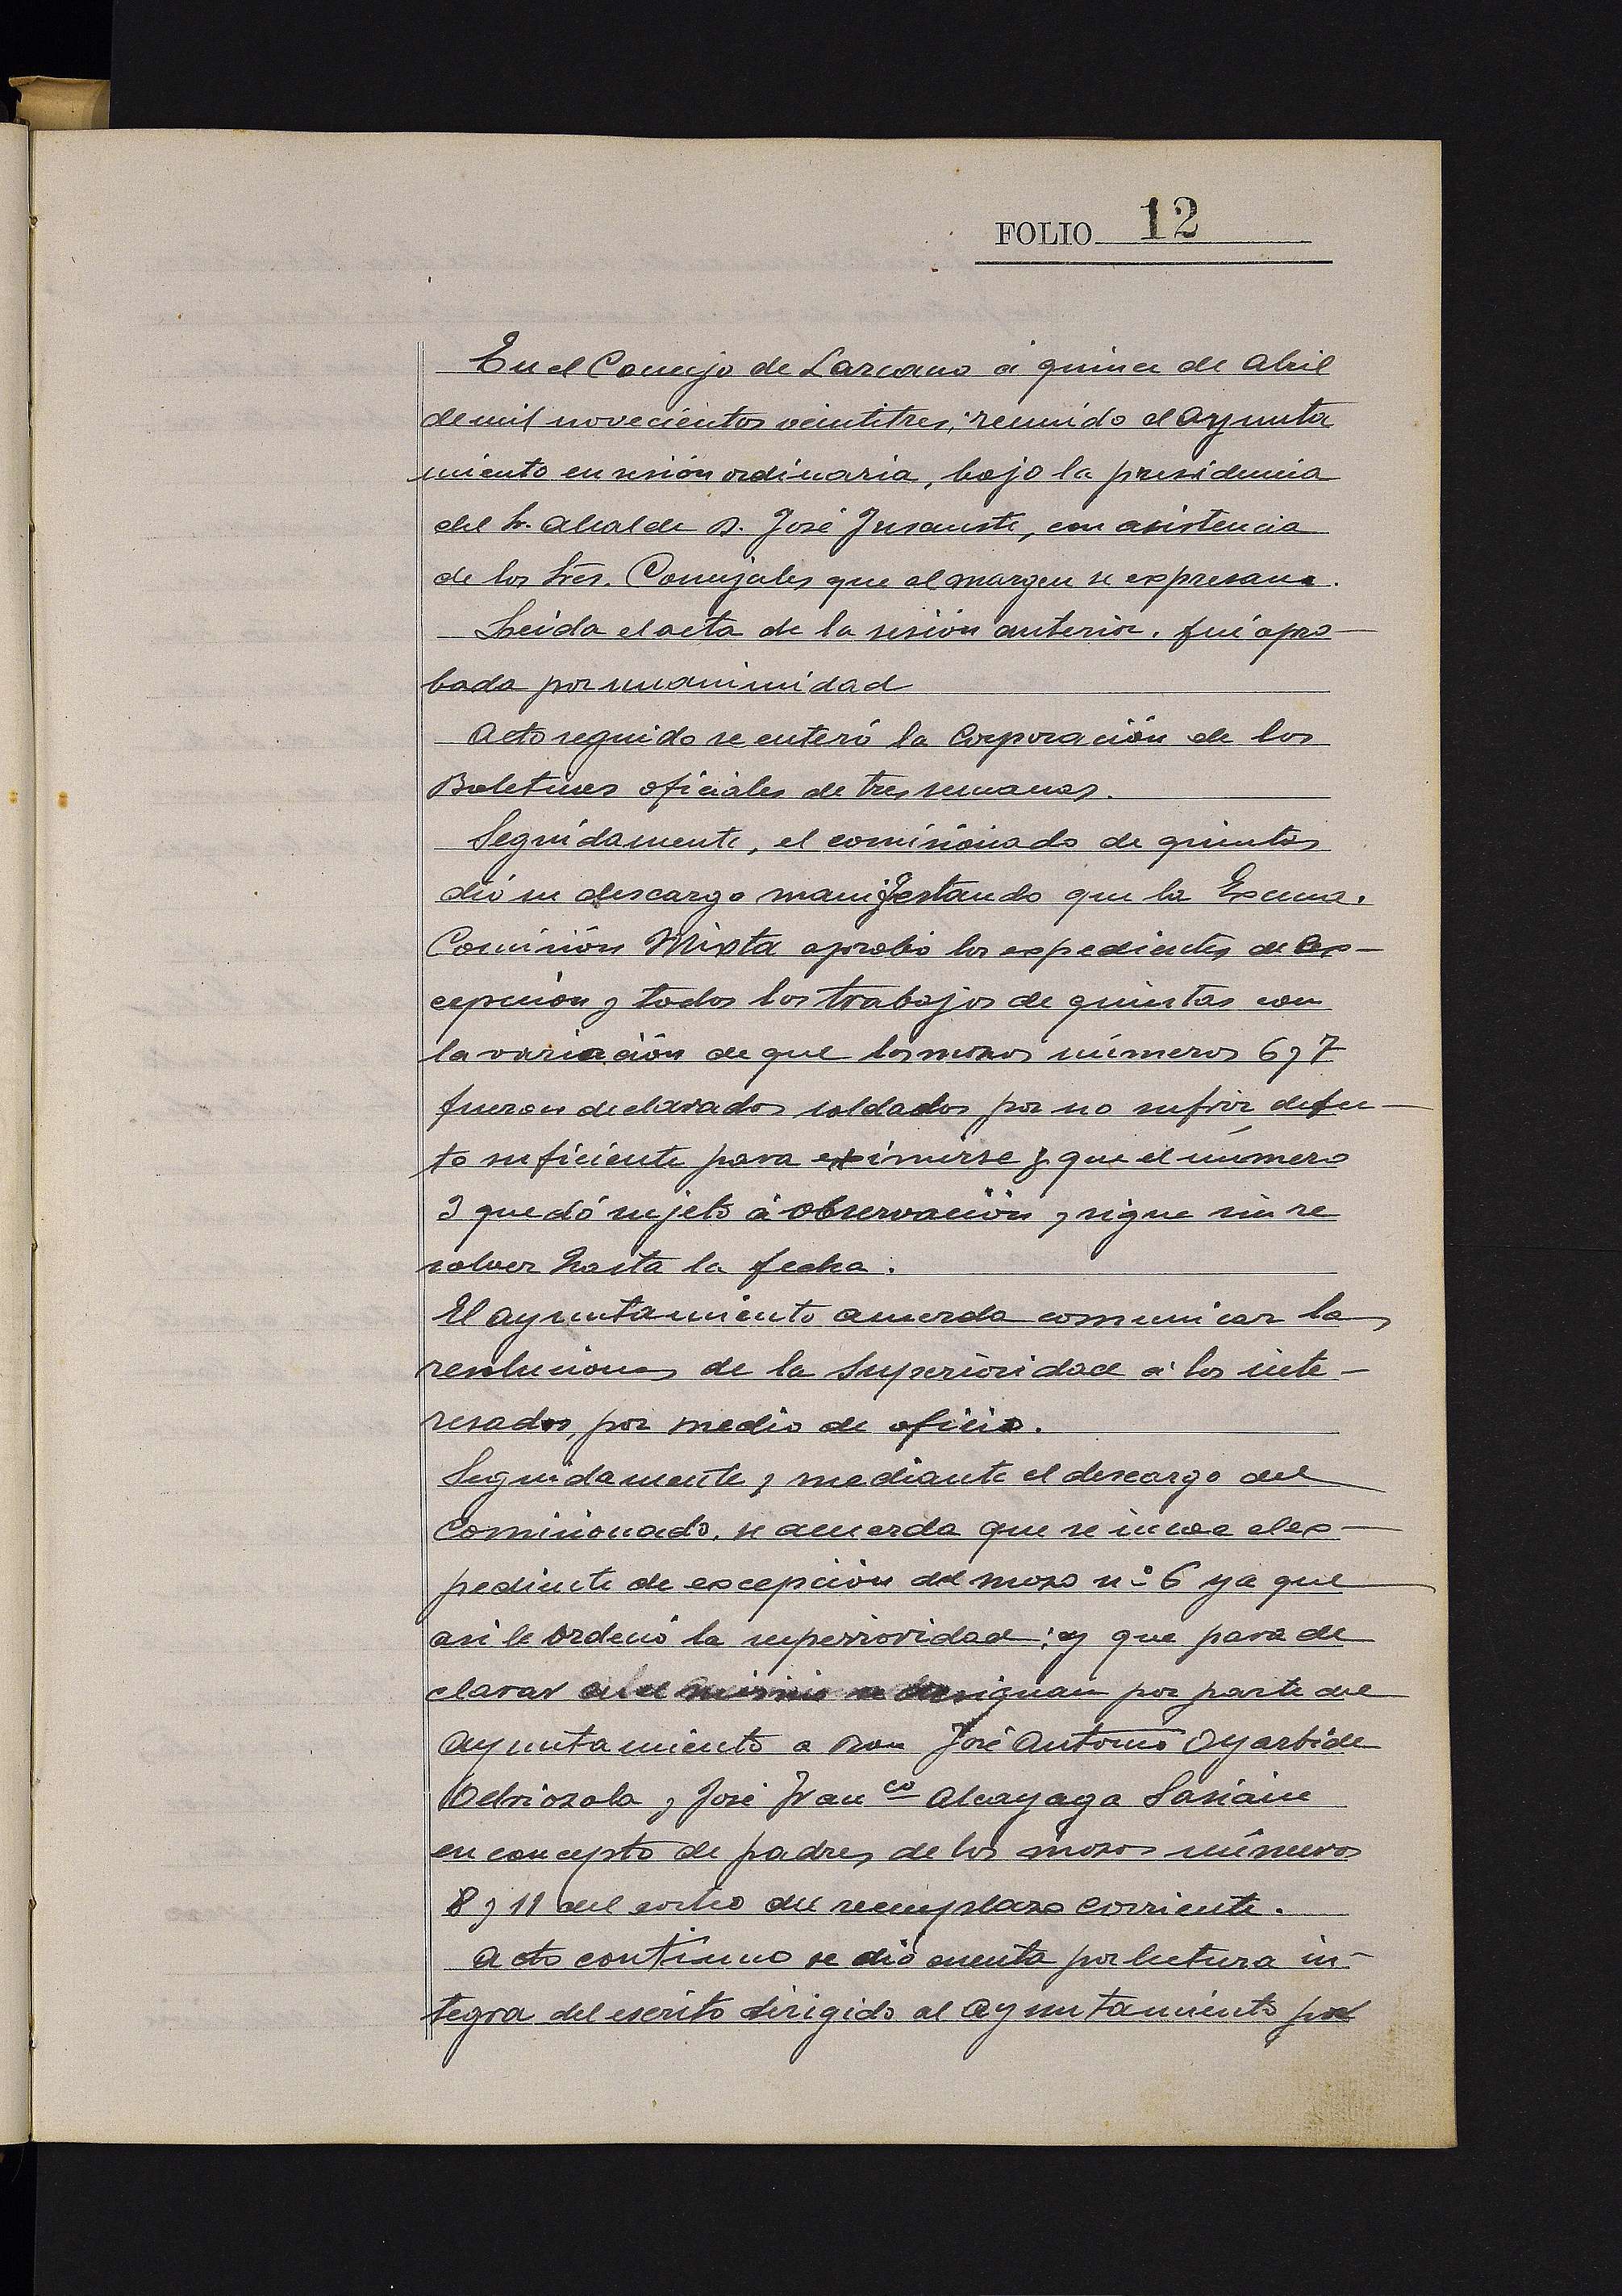 FOLIO 12
En el Concejo de Lazcano á quince de Abril
de mil novecientos veintitres, reunido el Ayunta
miento en sesión ordinaria, bajo la presidencia
del Sr. Alcalde D. José Insausti, con asistencia
de los Sres. Concejales que al margen se expresan.
Leida el acta de la sesión anterior. fué apro-
bada por unanimidad
Acto seguido se enteró la Corporación de los
Boletines oficiales de tres semanas.
Seguidamente, el comisionado de quintas
dió su descargo manifestando que la Excma.
Comisión Mixta aprobó los expedientes de ex-
cepción y todos los trabajos de quintas con
la variación de que los mozos números 6 y 7
fueron declarados soldados por no sufrir defec-
to suficiente para eximirse y que el número
3 quedó sujeto á observación y sigue sin re
solver hasta la fecha.
El Ayuntamiento acuerda comunicar las
resoluciones de la Superioridad á los inte-
resados, por medio de oficio.
Seguidamente y mediante el descargo del
Comisionado, se acuerda que se incoe el ex-
pediente de excepción del mozo nº 6 ya que
asi le ordenó la superioridad; y que para de
clarar en el mismo se designan por parte del
Ayuntamiento a Don José Antonio Oyarbide
Odriozola y José Franco Alcayaga Sasiain
en concepto de padres de los mozos números
8 y 11 del sorteo del reemplazo corriente.
Acto continuo se dió cuenta por lectura in-
tegra del escrito dirigido al Ayuntamiento por